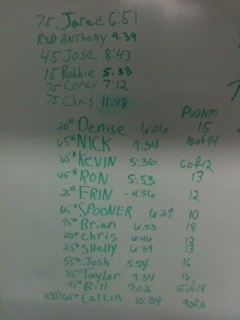 75 Jared 6:51
RXD Anthony 9:39
45 Jose 8:43
15 Robbie 5:38
75 Corey 7:12
75 Chris 11:48
PVONMI
20# Denise 6:06 15
65# NICK 7:34 10 of 14
65# KEVIN 5:36 6 of 12
45# RON 5:53 13
25# ERIN 4:56 12
65# SPOONER 6:27 10
75# Brian 6:53 18
20# Chris 6:46 12
25# Shelly 6:39 13
55# Josh 5:54 16
35# Taylor 7:34 14
Bill 7:02 15 of 19
Catlin 10:39